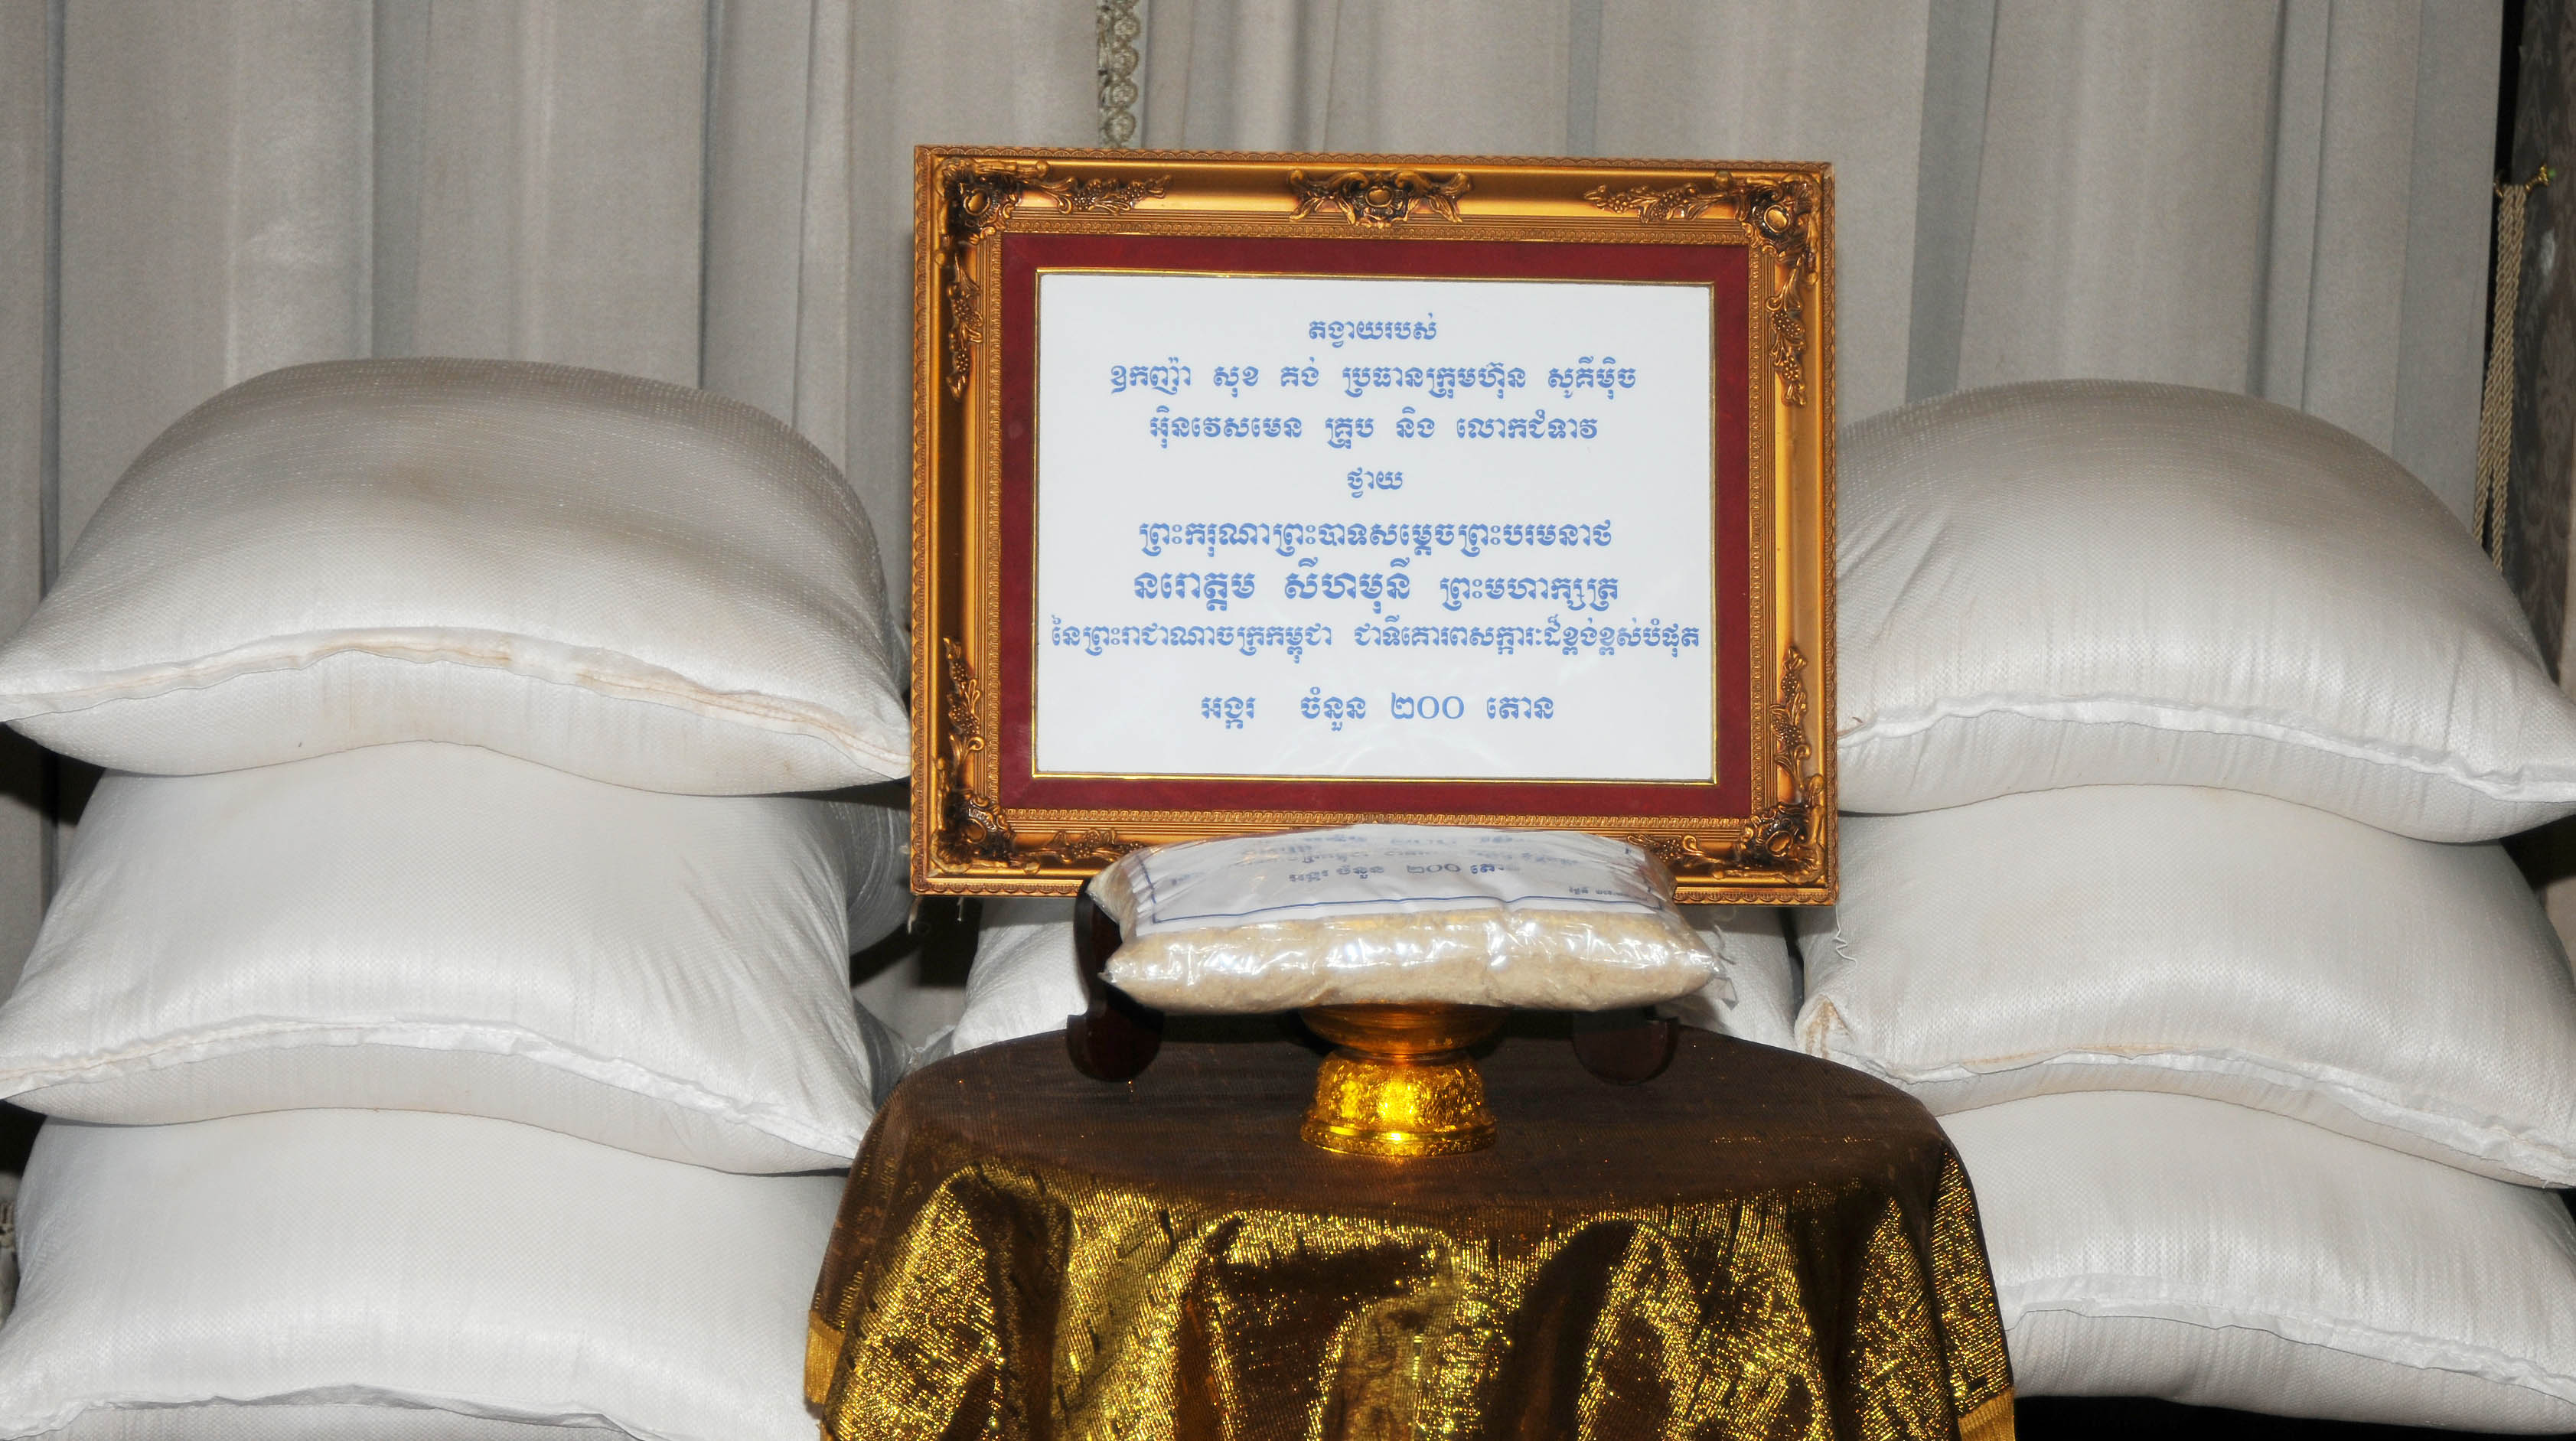 តង្វាយរបស់
ឧកញ៉ា សុខ គង់ ប្រធានក្រុមហ៊ុន សូគីម៉ិច
អ៊ិនវេសមេន គ្រុប និង លោកជំទាវ
ថ្វាយ
ព្រះករុណាព្រះបាទសម្តេចព្រះបរមនាថ
នរោត្តម សីហមុនី ព្រះមហាក្សត្រ
នៃព្រះរាជាណាចក្រកម្ពុជា ជាទីគោរពសក្ការៈដ៏ខ្ពង់ខ្ពស់បំផុត
អង្ករ ចំនួន ២០០ តោន
អង្ករ ចំនួន ២០០ តោន